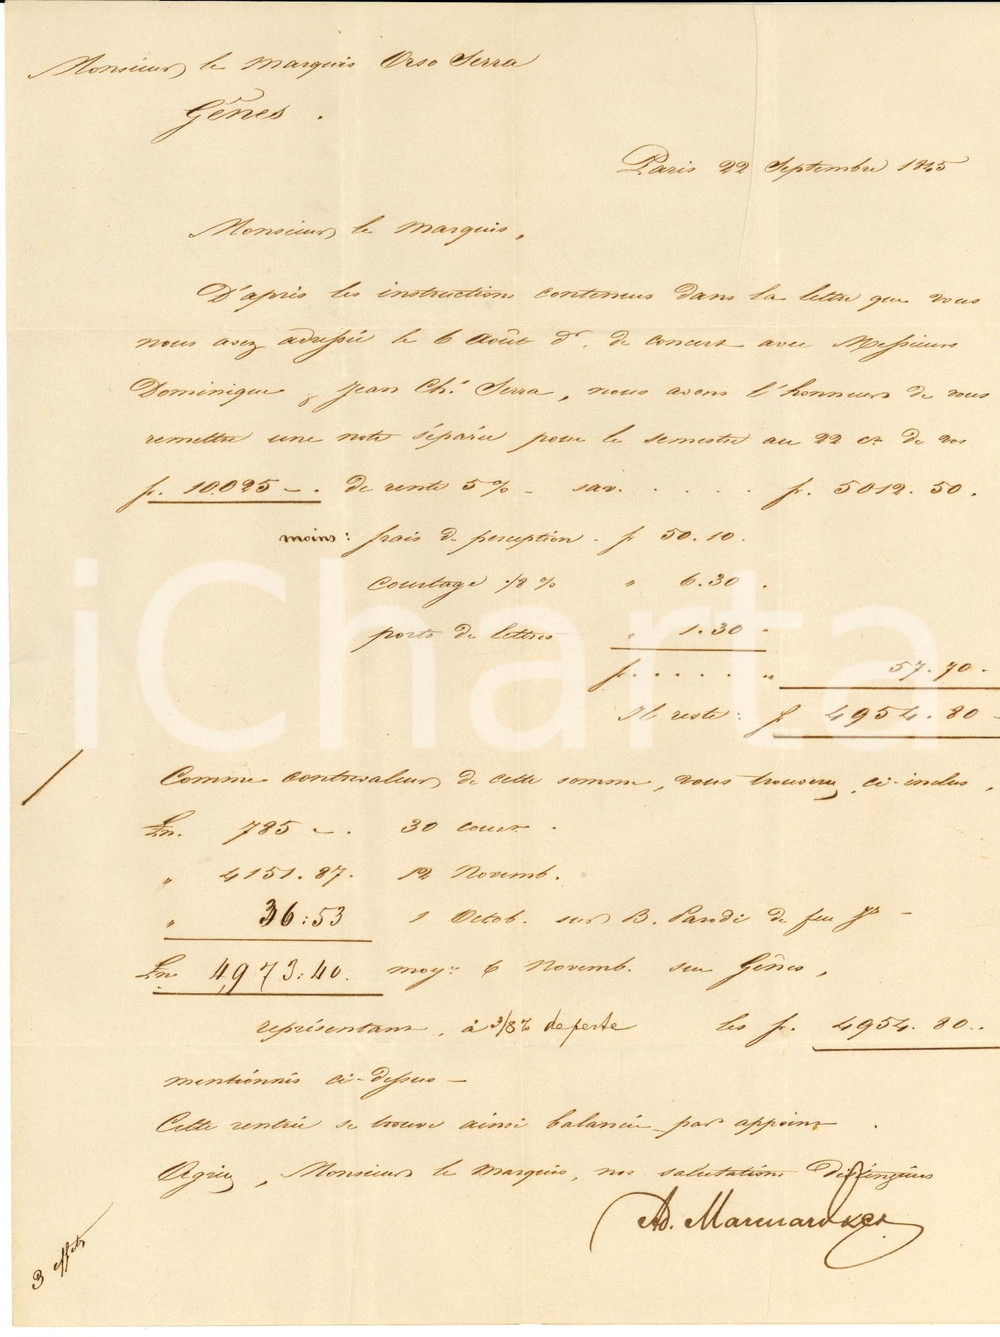 Monsieur le Marquis Orso Serra
Gênes.
Paris 22 Septembre 1845
Monsieur le Marquis,
D'après les instructions contenues dans la lettre que vous
nous avez adressée le 6 Août dr. de concert avec Messieurs
Dominique & Jean Chs. Serra, nous avons l'honneur de vous
remettre une note séparée pour le semestre au 22 ct. de vos
fr. 10.025 —. de rente 5% — sav. . . . . fr. 5012.50.
moins: frais de perception - fr 50.10.
courtage 1/8 % " 6.30.
ports de lettres " 1.30.
fr. . . . . . " 57.70.
Il reste: fr 4954.80 —
Comme contrevaleur de cette somme, vous trouverez ci-inclus,
Ln. 785 —. 30 cour.
" 4151.87. 12 Novemb.
" 36:53 1 Octob. sur B. Parodi de feu
Ln 4,973:40. moyn. 6 Novemb. sur Gênes,
représentant, à 3/8 % de perte les fr. 4954.80..
mentionnés ci-dessus —
Cette rentrée se trouve ainsi balancée par appoint.
Agréez, Monsieur le Marquis, nos salutations distinguées
Ad. Marcuard & Ce.
3 effets
iCharta